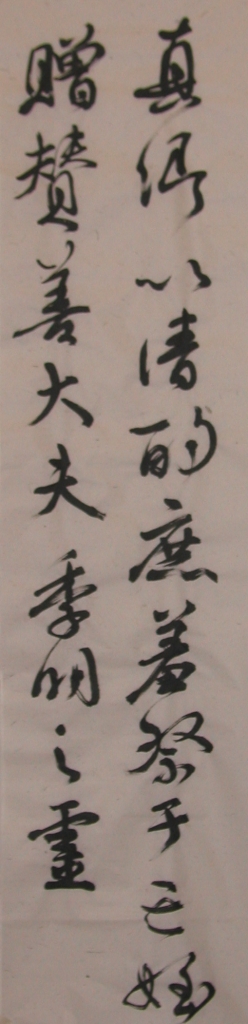 真卿以清酌庶羞祭于亡姪
贈贊善大夫季明之靈